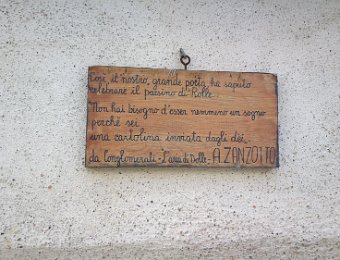 Così, il nostro, grande poeta ha saputo
celebrare il paesino di Rolle...
"Non hai bisogno d'esser nemmeno un sogno
perché sei
una cartolina inviata dagli dei"
da Conglomerati - L'aria di Dolle - A. ZANZOTTO